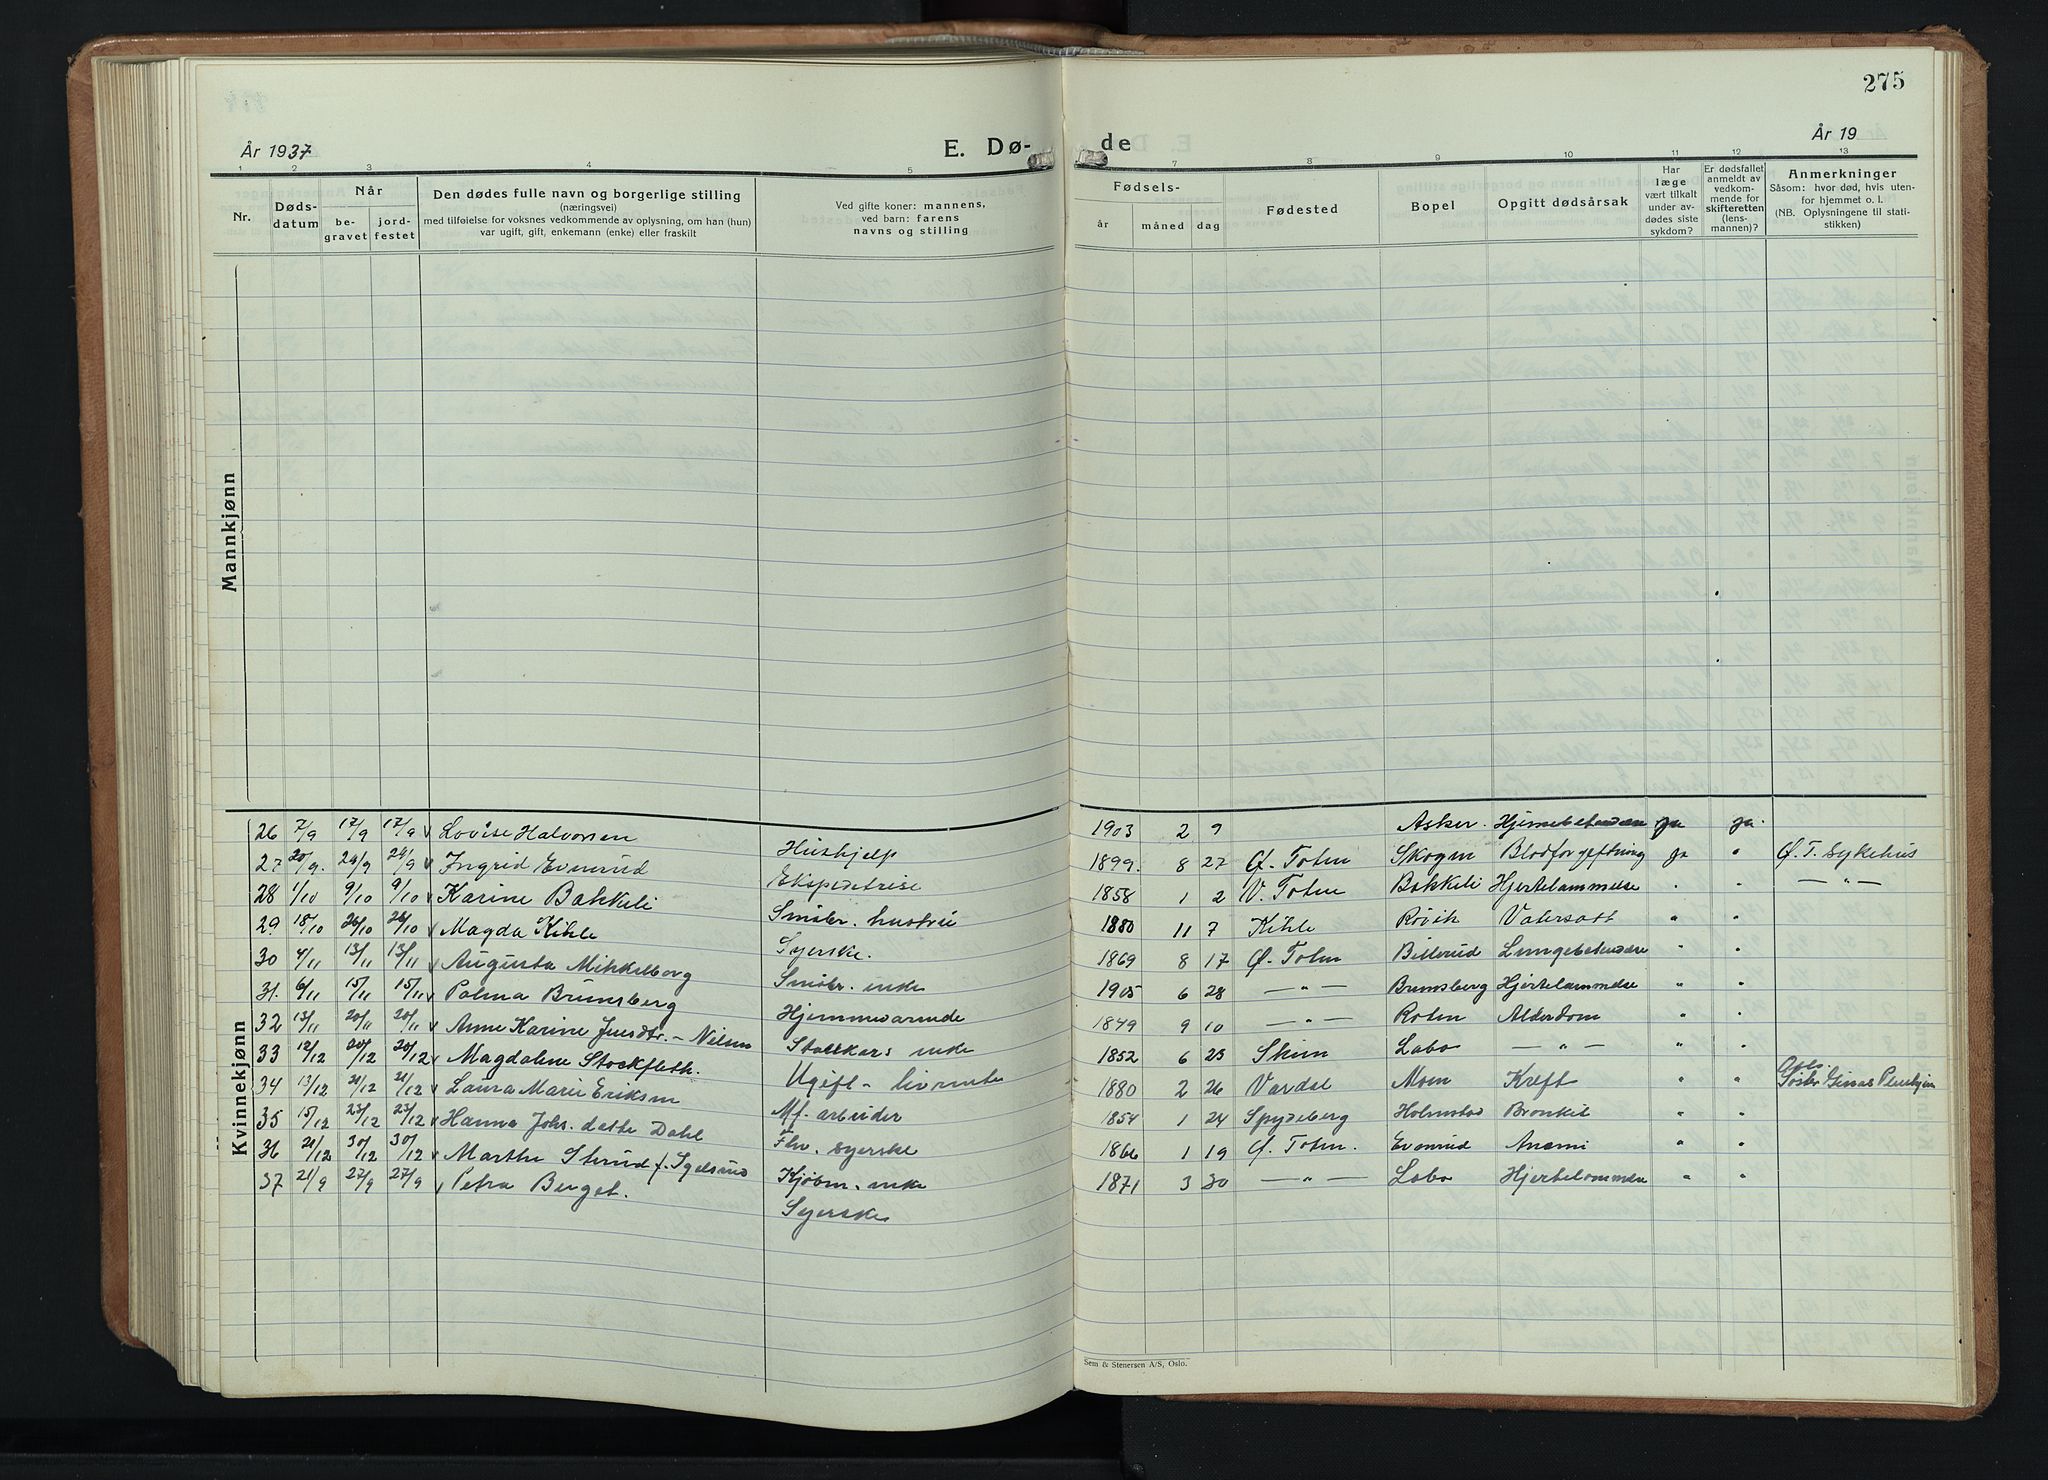 275
År 1937
E. Dø-
de
År 19
1 2 3 4 5 7 8 9 10 11 12 13
Nr.
Døds-
datum
Når
be-
gravet
jord-
festet
Den dødes fulle navn og borgerlige stilling
(næringsvei)
med tilføielse for voksnes vedkommende av oplysning, om han (hun)
var ugift, gift, enkemann (enke) eller fraskilt
Ved gifte koner: mannens,
ved barn: farens
navns og stilling
Fødsels-
år måned dag
Fødested
Bopel
Opgitt dødsårsak
Har
læge
vært tilkalt
under av-
dødes siste
sykdom?
Er dødsfallet
anmeldt av
vedkom-
mende for
skifteretten
(lens-
mannen)?
Anmerkninger
Såsom: hvor død, hvis uten-
for hjemmet o. l.
(NB. Oplysningene til stati-
stikken)
Mannkjønn
Kvinnekjønn
26 7/9 17/9 17/9 Lovise Halvorsen Hushjelp 1903 2 9 Asker ja ja
27 20/9 24/9 24/9 Ingrid Evenrud Ekspeditrise 1899 8 27 Ø. Toten Skogen Blodforgiftning ja " Ø. T. Sykehus
28 1/10 9/10 9/10 Karine Bakkeli Småbr. hustru 1858 1 2 V. Toten Bakkeli Hjertelammelse " " — " —
29 18/10 26/10 26/10 Magda Kihle Syerske. 1880 11 7 Kihle Røvik Vatersott " "
30 4/11 13/11 13/11 Augusta Mikkelborg Småbr. enke 1869 8 17 Ø. Toten Billerud Lungebetendelse " "
31. 6/11 15/11 15/11 Palma Brunsberg Hjemmeværende 1905 6 28 — " — Brunsberg Hjertelammelse " "
32 13/11 20/11 20/11 Anne Karine Jensdtr. - Nilsen enke 1849 9 10 — " — Roten Alderdom " "
33 12/12 20/12 20/12 Magdalene Stockfleth. Ugift - 1852 6 23 Labo — " — " "
34 13/12 21/12 21/12 Laura Marie Eriksen arbeider 1880 2 26 Vardal Moen Kreft " " Oslo.
35 15/12 23/12 23/12 Hanna Johs. datter Dahl Fhv. syerske 1854 1 24 Spydeberg Holmstad Bronkit " "
36 21/12 30/12 30/12 Marthe Sterud f. Igelsrud Kjøbm. enke 1866 1 19 Ø. Toten. Evenrud Anæmi " "
37 21/9 27/9 27/9 Petra Berget. Syerske 1871 3 30 — " — Labo Hjertelammelse " "
Sem & Stenersen A/S, Oslo.